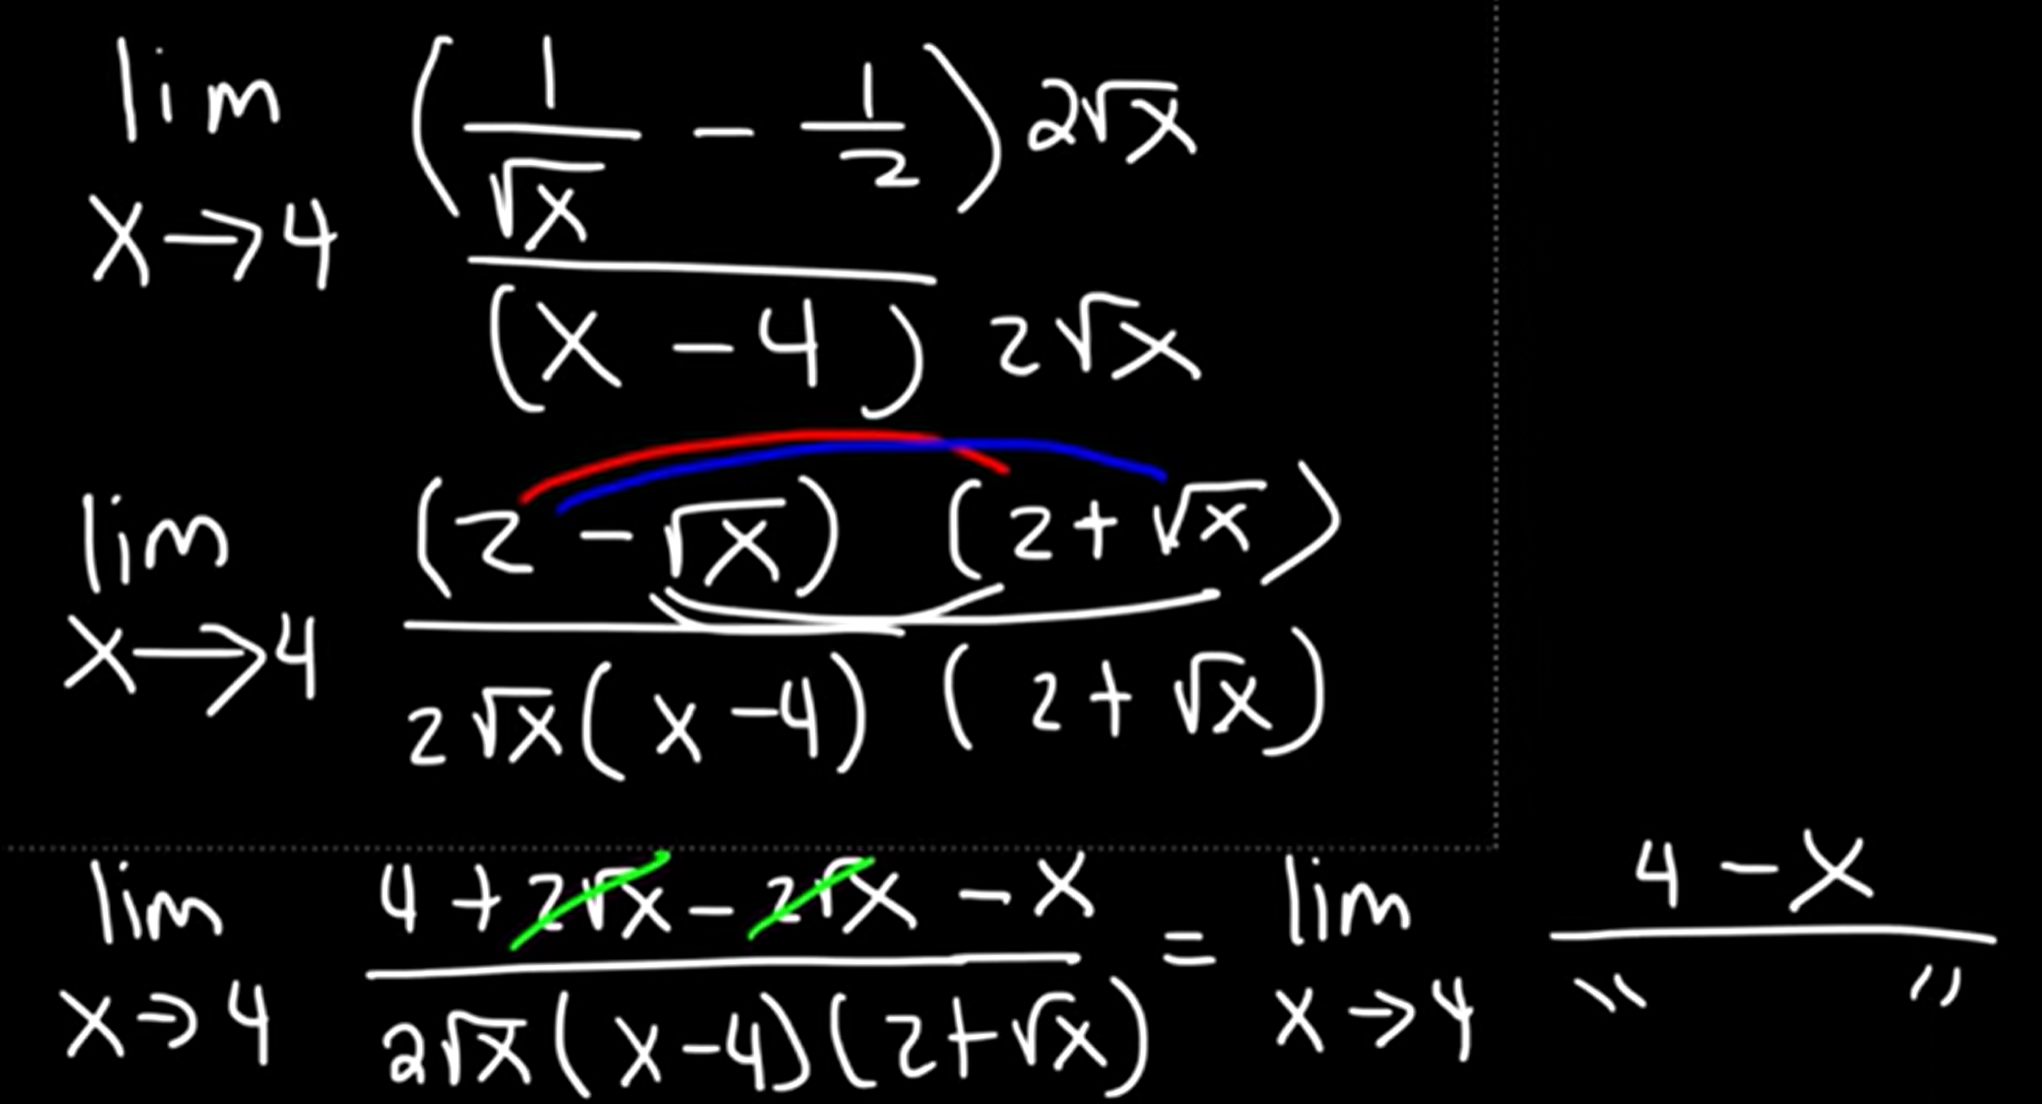 lim x→4 ((1/√x - 1/2) 2√x) / ((x - 4) 2√x)
lim x→4 ((2 - √x) (2 + √x)) / (2√x (x - 4) (2 + √x))
lim x→4 (4 + 2√x - 2√x - x) / (2√x (x - 4)(2 + √x)) = lim x→4 (4 - x) / (" ")